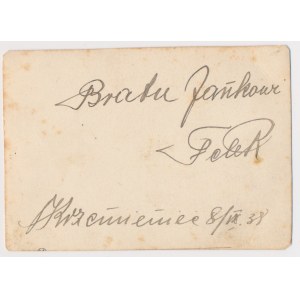 Bratu Jańkowi
Felek
Krzemieniec 8/IX.38